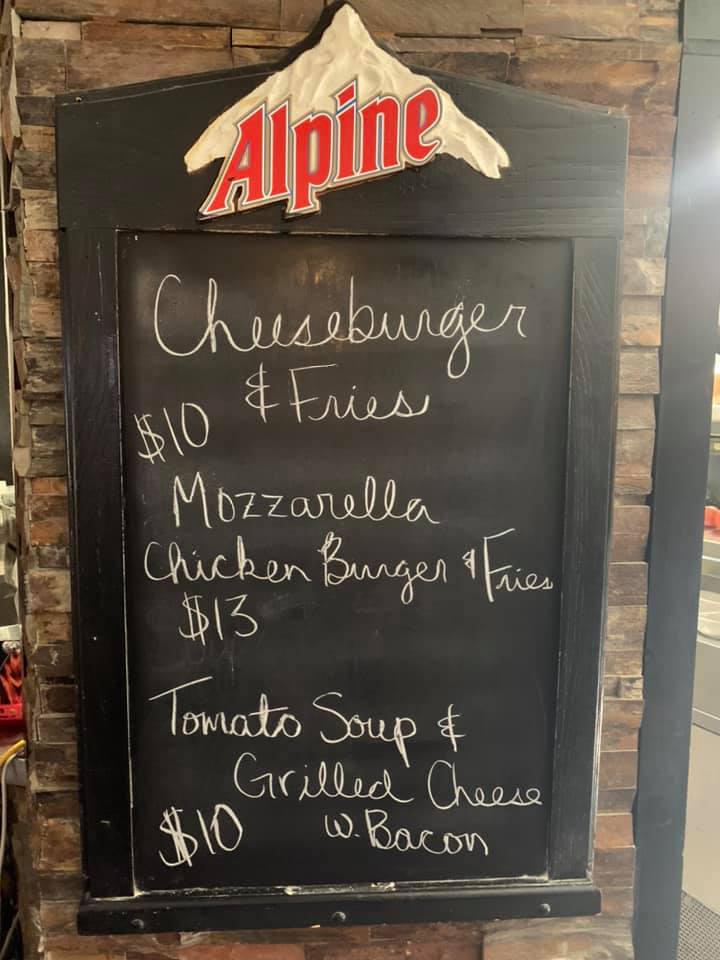 Alpine
Cheeseburger
& Fries
$10
Mozzarella
Chicken Burger & Fries
$13
Tomato Soup &
Grilled Cheese
$10 w. Bacon